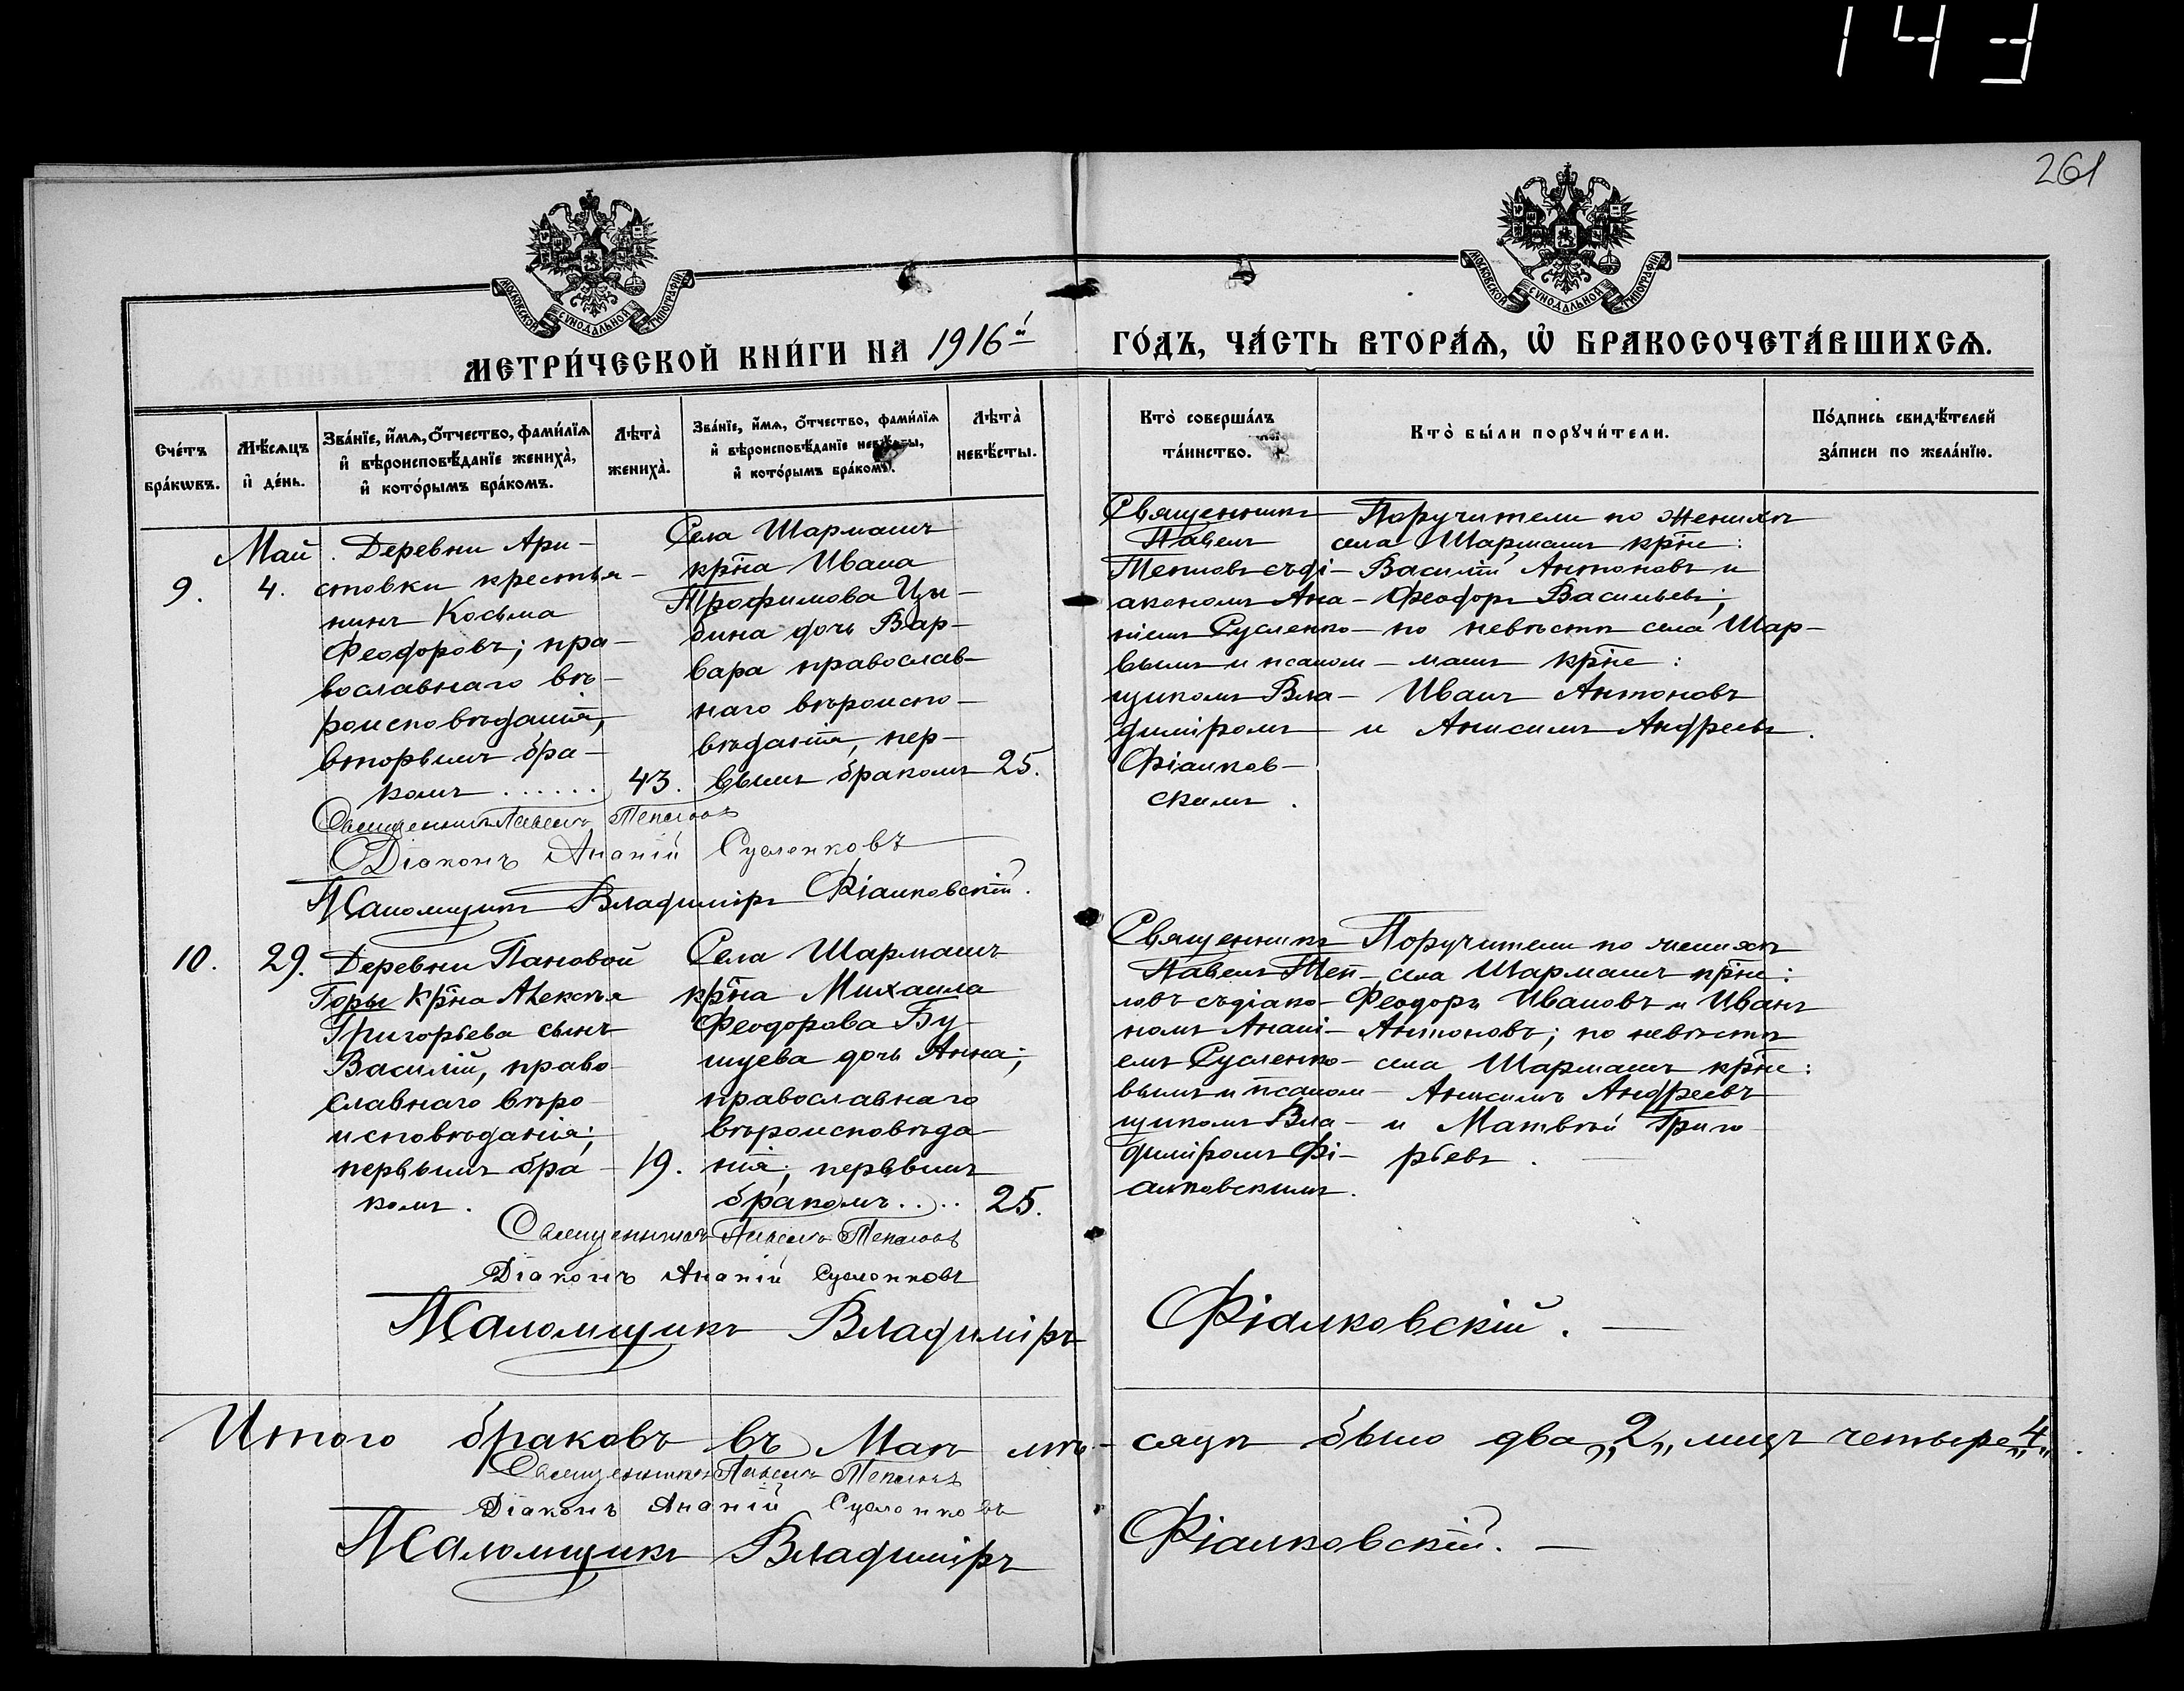 143
261
МОСКОВСКОЙ СУНОДАЛЬНОЙ ТИПОГРАФІИ
МОСКОВСКОЙ СУНОДАЛЬНОЙ ТИПОГРАФІИ
МЕТРИ́ЧЕСКОЙ КНИ́ГИ НА 1916й
ГО́ДЪ, ЧА́СТЬ ВТОРА́Ѧ, Ѽ БРАКОСОЧЕТА́ВШИХСѦ.
Сче́тъ
бра́кѡвъ.
Мѣ́сѧцъ
и҆ де́нь.
Зва́нїе, и҆́мѧ, ѻ҆́тчество, фами́лїѧ
и҆ вѣроисповѣ́данїе жениха̀,
и҆ кото́рымъ бра́комъ.
Лѣта̀
жениха̀.
Зва́нїе, и҆́мѧ, ѻ҆́тчество, фами́лїѧ
и҆ вѣроисповѣ́данїе невѣ́сты,
и҆ кото́рымъ бра́комъ.
Лѣта̀
невѣ́сты.
Кто̀ соверша́лъ
та́инство.
Кто̀ бы́ли порꙋчи́тели.
По́дпись свидѣ́телей
за́писи по жела́нїю.
9.
Май
4.
Деревни Ари-
стовки крестья-
нинъ Косьма
Феодоровъ; пра-
вославнаго вѣ-
роисповѣданія,
вторымъ бра-
комъ ......
43.
Села Шармашъ
кр̃на Ивана
Трофимова Цы-
дочь Вар-
вара православ-
наго вѣроиспо-
вѣданія, пер-
вымъ бракомъ
25.
Священникъ
Павелъ
Тепловъ съ ді-
акономъ Ана-
ніемъ Сусленко-
вымъ и псалом-
щикомъ Вла-
диміромъ
Фіалков-
скимъ.
Поручители по женихѣ
села Шармашъ кр̃не:
Василій Антоновъ и
Феодоръ Васильевъ;
по невѣстѣ села Шар-
машъ кр̃не:
Иванъ Антоновъ
и Анисимъ Андреевъ.
Священникъ Павелъ Тепловъ
Діаконъ Ананій Сусленковъ
Псаломщикъ Владиміръ Фіалковскій.
10.
29.
Деревни Пановой
Горы кр̃на Алексѣя
Григорьева сынъ
Василій, право-
славнаго вѣро-
исповѣданія;
первымъ бра-
комъ.
19.
Села Шармашъ
кр̃на Михаила
Феодорова Бу-
дочь Анна;
православнаго
вѣроисповѣда-
нія; первымъ
бракомъ....
25.
Священникъ
Павелъ Теп-
ловъ съ діако-
номъ Анані-
емъ Сусленко-
вымъ и псалом-
щикомъ Вла-
диміромъ Фі-
алковскимъ.
Поручители по женихѣ
села Шармашъ кр̃не:
Феодоръ Ивановъ и Иванъ
Антоновъ; по невѣстѣ
села Шармашъ кр̃не:
Анисимъ Андреевъ
и Матвѣй Григо-
рьевъ.
Священникъ Павелъ Тепловъ
Діаконъ Ананій Сусленковъ
Псаломщикъ Владиміръ Фіалковскій.
Итого браковъ въ Маѣ мѣ-сяцѣ было два „2„ лицъ четыре „4„.
Священникъ Павелъ Тепловъ
Діаконъ Ананій Сусленковъ
Псаломщикъ Владиміръ Фіалковскій.